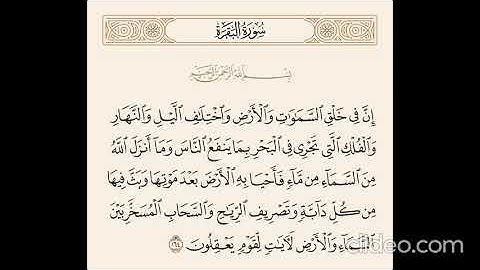 سُورَةُ البَقَرَةِ
بِسْمِ اللَّهِ الرَّحْمَٰنِ الرَّحِيمِ
إِنَّ فِي خَلْقِ ٱلسَّمَٰوَٰتِ وَٱلْأَرْضِ وَٱخْتِلَٰفِ ٱلَّيْلِ وَٱلنَّهَارِ
وَٱلْفُلْكِ ٱلَّتِي تَجْرِي فِي ٱلْبَحْرِ بِمَا يَنفَعُ ٱلنَّاسَ وَمَآ أَنزَلَ ٱللَّهُ
مِنَ ٱلسَّمَآءِ مِن مَّآءٍ فَأَحْيَا بِهِ ٱلْأَرْضَ بَعْدَ مَوْتِهَا وَبَثَّ فِيهَا
مِن كُلِّ دَآبَّةٍ وَتَصْرِيفِ ٱلرِّيَٰحِ وَٱلسَّحَابِ ٱلْمُسَخَّرِ بَيْنَ
ٱلسَّمَآءِ وَٱلْأَرْضِ لَءَايَٰتٍ لِّقَوْمٍ يَعْقِلُونَ ١٦٤
clideo.com